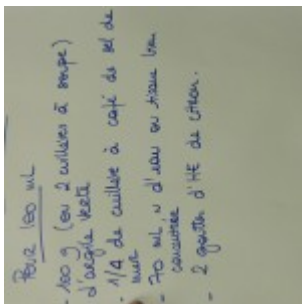 Pour 100 mL
- 100 g (ou 2 cuillères à soupe)
d'argile verte
- 1/4 de cuillère à café de sel de
mer
- 70 mL d'eau ou tisane bien
concentrée
- 2 gouttes d'HE de citron.